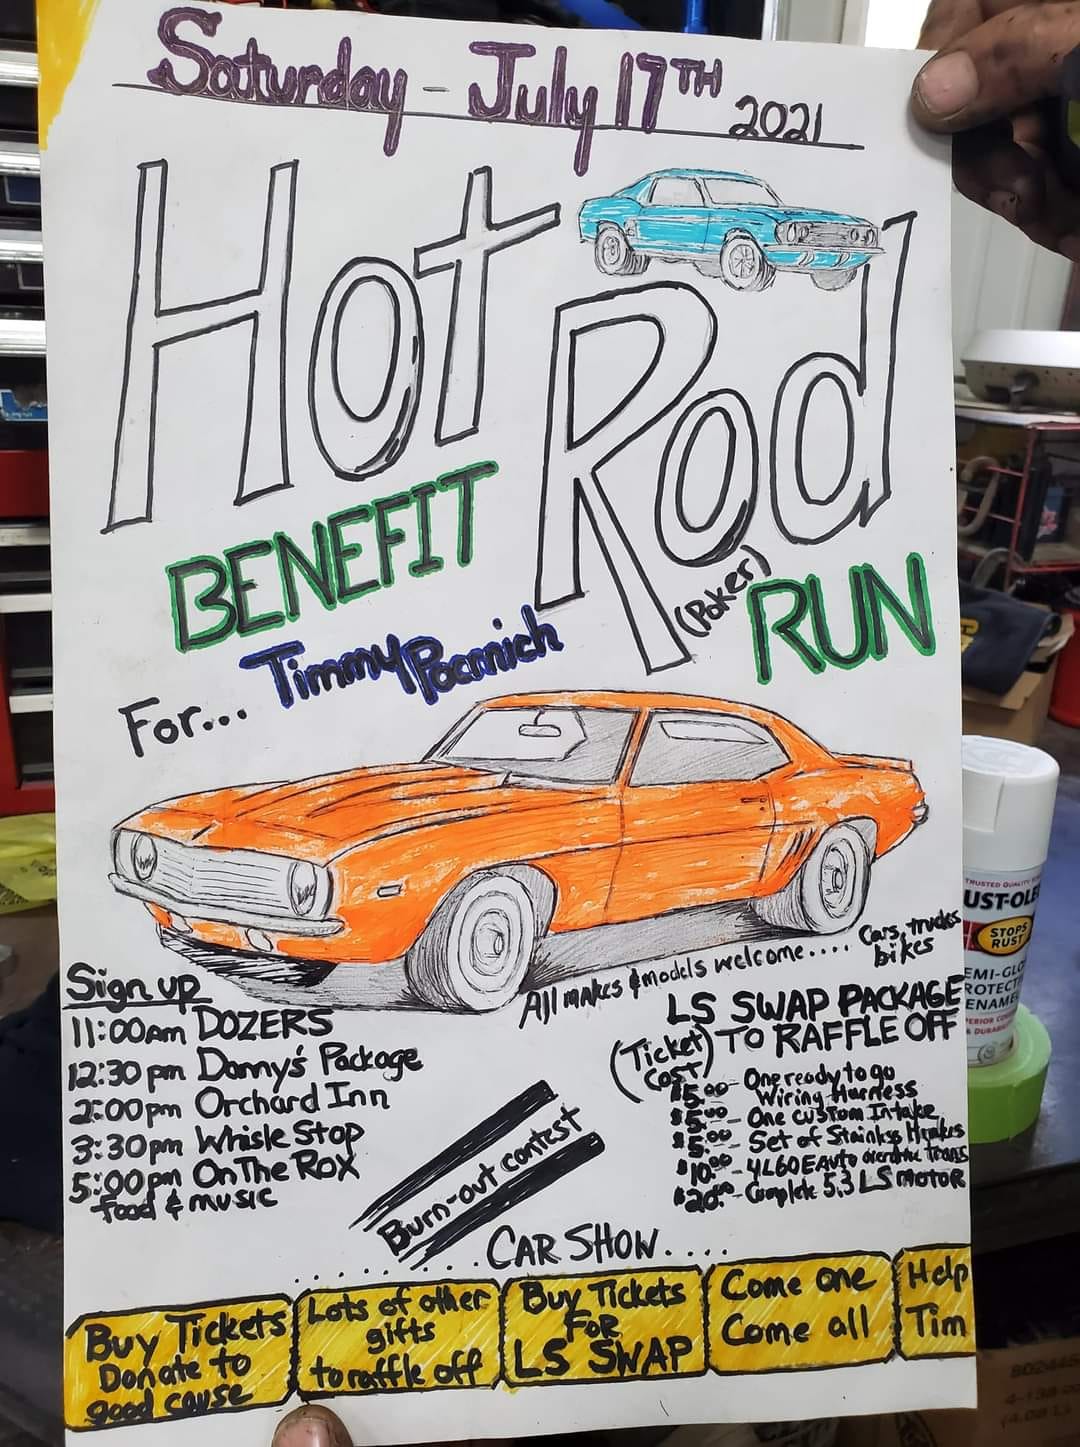 Saturday - July 17TH 2021
Hot Rod
BENEFIT (Poker) RUN
For... Timmy Pocrnich
All makes & models welcome.... Cars, trucks
bikes
Sign up
11:00am DOZERS
12:30 pm Danny's Package
2:00pm Orchard Inn
3:30pm Whisle Stop
5:00pm On The Rox
food & music
LS SWAP PACKAGE
TO RAFFLE OFF
(Ticket
Cost)
$5.00 - One ready to go
Wiring Harness
$5.00 - One custom Intake
$5.00 - Set of Stainless
$10.00 - 4L60E Auto overdrive Trans
$20.00 - Complete 5.3 LS MOTOR
Burn-out contest
CAR SHOW....
Buy Tickets
Donate to
good cause
Lots of other
gifts
to raffle off
Buy Tickets
FOR
LS SWAP
Come one
Come all
Help
Tim
TRUSTED QUALITY
UST-OLE
STOPS
RUST
EMI-GLO
ROTECT
ENAME